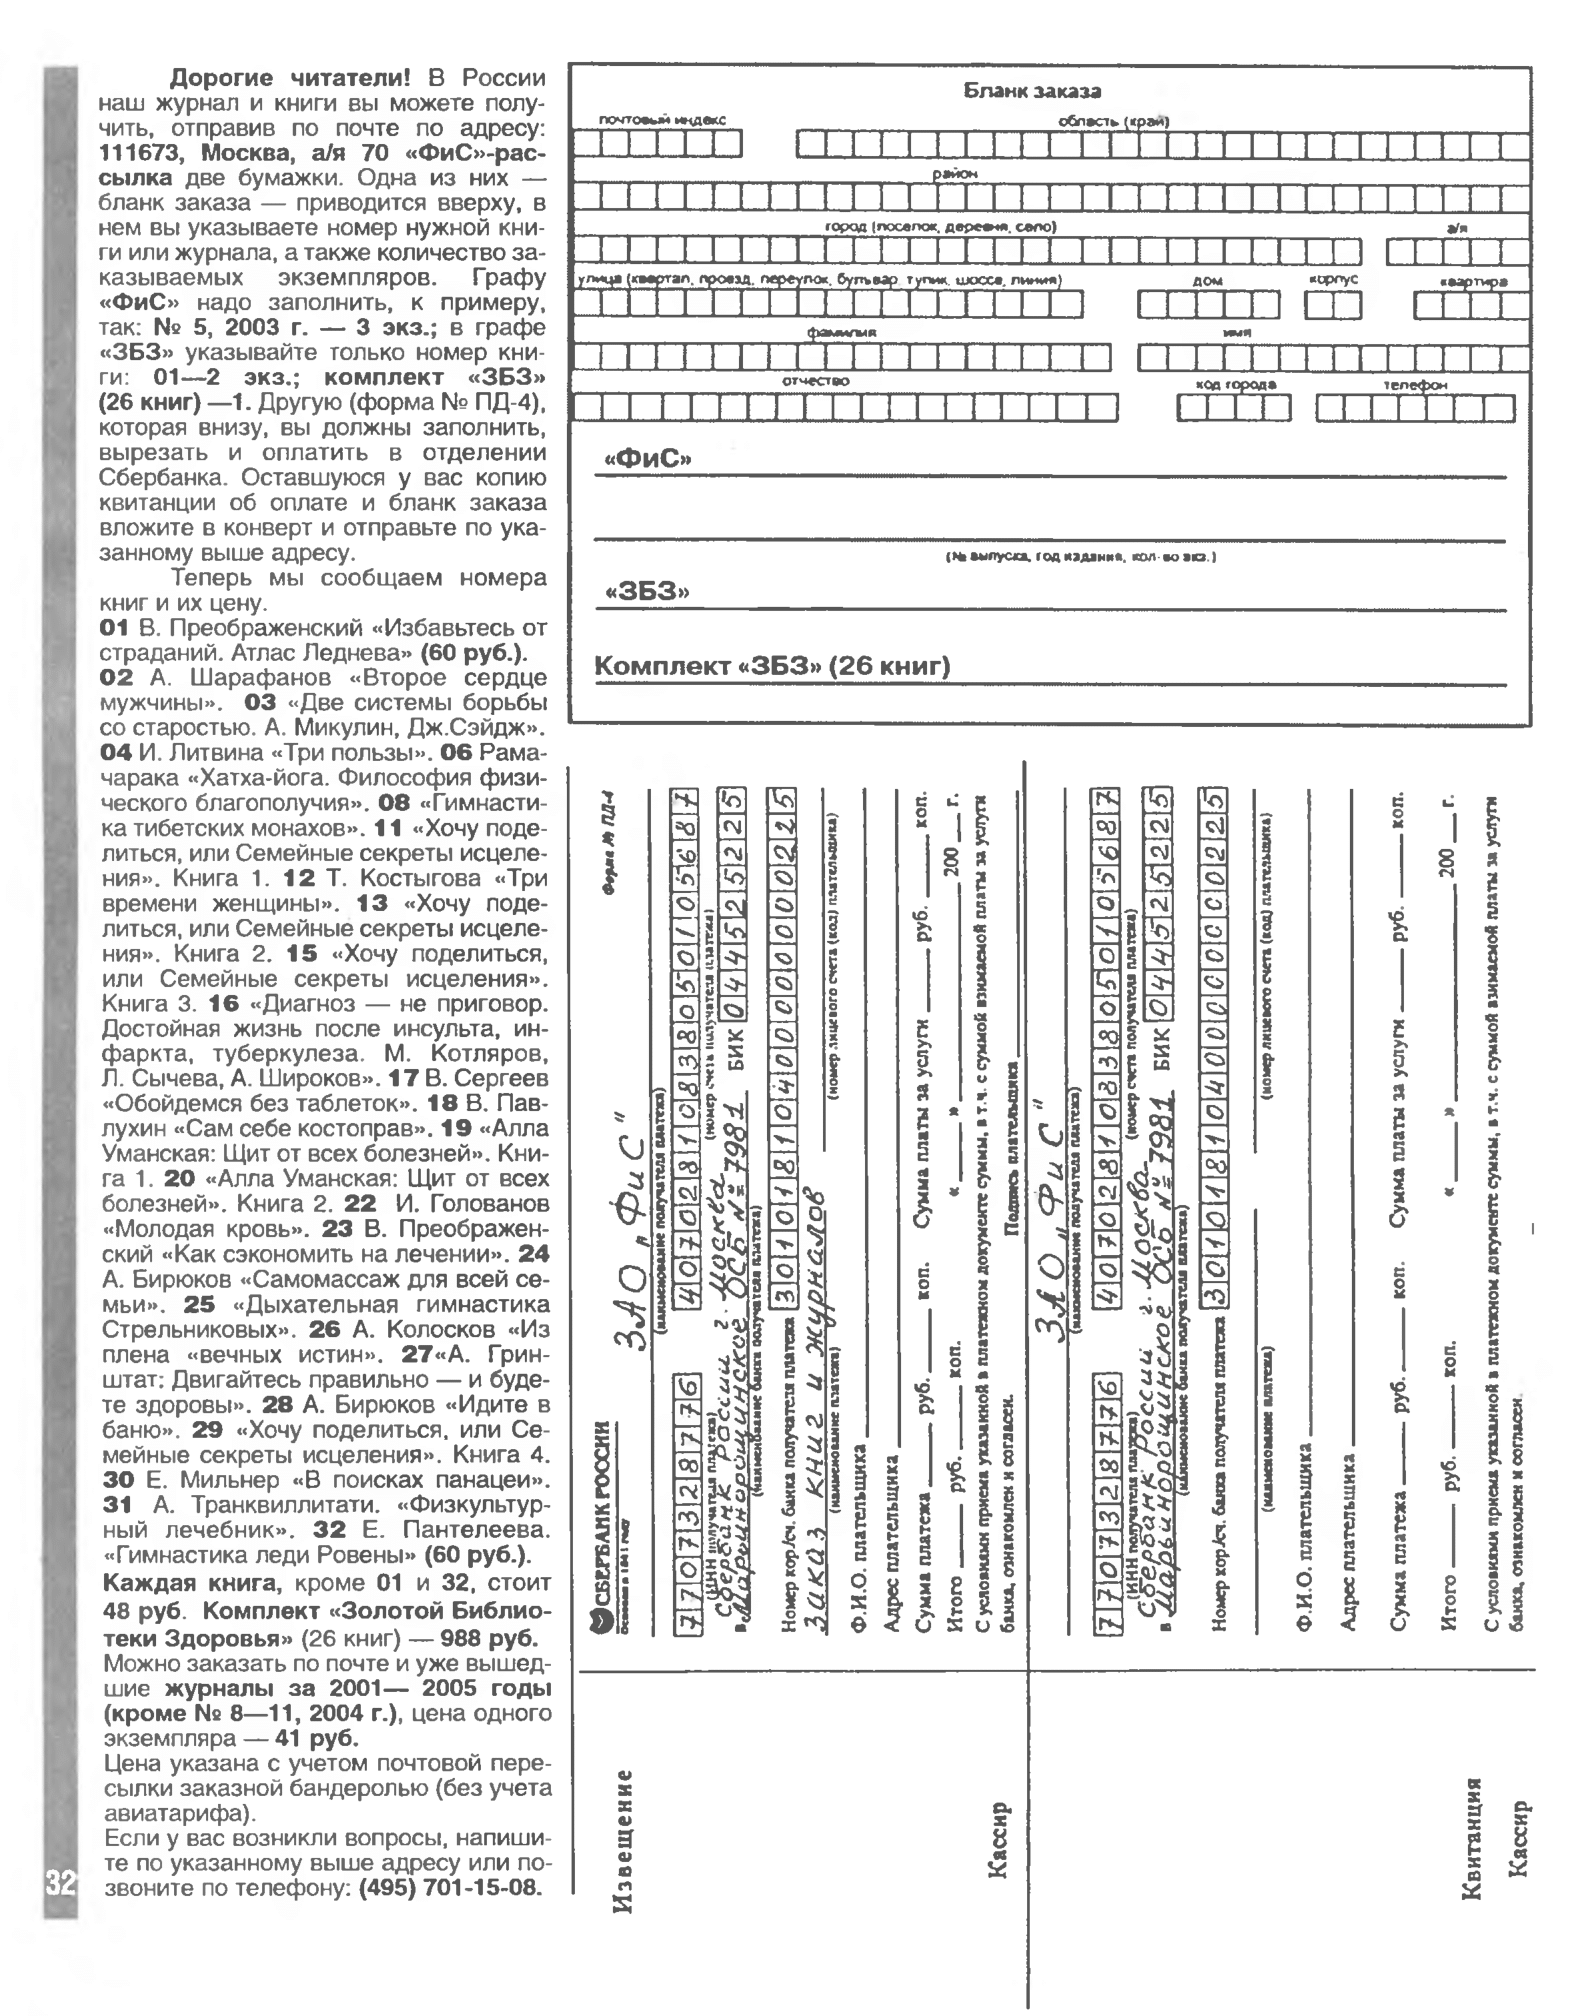 Дорогие читатели! В России
наш журнал и книги вы можете полу-
чить, отправив по почте по адресу:
111673, Москва, а/я 70 «ФиС»-рас-
сылка две бумажки. Одна из них —
бланк заказа — приводится вверху, в
нем вы указываете номер нужной кни-
ги или журнала, а также количество за-
казываемых экземпляров. Графу
«ФиС» надо заполнить, к примеру,
так: № 5, 2003 г. — 3 экз.; в графе
«ЗБЗ» указывайте только номер кни-
ги: 01—2 экз.; комплект «ЗБЗ»
(26 книг) —1. Другую (форма № ПД-4),
которая внизу, вы должны заполнить,
вырезать и оплатить в отделении
Сбербанка. Оставшуюся у вас копию
квитанции об оплате и бланк заказа
вложите в конверт и отправьте по ука-
занному выше адресу.
Теперь мы сообщаем номера
книг и их цену.
01 В. Преображенский «Избавьтесь от
страданий. Атлас Леднева» (60 руб.).
02 А. Шарафанов «Второе сердце
мужчины». 03 «Две системы борьбы
со старостью. А. Микулин, Дж.Сэйдж».
04 И. Литвина «Три пользы». 06 Рама-
чарака «Хатха-йога. Философия физи-
ческого благополучия». 08 «Гимнасти-
ка тибетских монахов». 11 «Хочу поде-
литься, или Семейные секреты исцеле-
ния». Книга 1. 12 Т. Костыгова «Три
времени женщины». 13 «Хочу поде-
литься, или Семейные секреты исцеле-
ния». Книга 2. 15 «Хочу поделиться,
или Семейные секреты исцеления».
Книга 3. 16 «Диагноз — не приговор.
Достойная жизнь после инсульта, ин-
фаркта, туберкулеза. М. Котляров,
Л. Сычева, А. Широков». 17 В. Сергеев
«Обойдемся без таблеток». 18 В. Пав-
лухин «Сам себе костоправ». 19 «Алла
Уманская: Щит от всех болезней». Кни-
га 1. 20 «Алла Уманская: Щит от всех
болезней». Книга 2. 22 И. Голованов
«Молодая кровь». 23 В. Преображен-
ский «Как сэкономить на лечении». 24
А. Бирюков «Самомассаж для всей се-
мьи». 25 «Дыхательная гимнастика
Стрельниковых». 26 А. Колосков «Из
плена «вечных истин». 27«А. Грин-
штат: Двигайтесь правильно — и буде-
те здоровы». 28 А. Бирюков «Идите в
баню». 29 «Хочу поделиться, или Се-
мейные секреты исцеления». Книга 4.
30 Е. Мильнер «В поисках панацеи».
31 А. Транквиллитати. «Физкультур-
ный лечебник». 32 Е. Пантелеева.
«Гимнастика леди Ровены» (60 руб.).
Каждая книга, кроме 01 и 32, стоит
48 руб. Комплект «Золотой Библио-
теки Здоровья» (26 книг) — 988 руб.
Можно заказать по почте и уже вышед-
шие журналы за 2001— 2005 годы
(кроме № 8—11, 2004 г.), цена одного
экземпляра — 41 руб.
Цена указана с учетом почтовой пере-
сылки заказной бандеролью (без учета
авиатарифа).
Если у вас возникли вопросы, напиши-
те по указанному выше адресу или по-
звоните по телефону: (495) 701-15-08.
32
Бланк заказа
почтовый индекс область (край)
район
город (поселок, деревня, село) а/я
улица (квартал, проезд, переулок, бульвар, тупик, шоссе, линия) дом корпус квартира
фамилия имя
отчество код города телефон
«ФиС»
(№ выпуска, год издания, кол-во экз.)
«ЗБЗ»
Комплект «ЗБЗ» (26 книг)
Извещение
Кассир
СБЕРБАНК РОССИИ Форма № ПД-4
Основан в 1841 году
ЗАО „ФиС"
(наименование получателя платежа)
7707328776 40702810838050105687
(ИНН получателя платежа) (номер счета получателя платежа)
Сбербанк России г. Москва
в Марьинорощинское ОСБ № 7981 БИК 044525225
(наименование банка получателя платежа)
Номер кор./сч. банка получателя платежа 30101810400000000225
Заказ книг и журналов
(наименование платежа) (номер лицевого счета (код) плательщика)
Ф.И.О. плательщика
Адрес плательщика
Сумма платежа руб. коп. Сумма платы за услуги руб. коп.
Итого руб. коп. « » 200 г.
С условиями приема указанной в платежном документе суммы, в т.ч. с суммой взимаемой платы за услуги
банка, ознакомлен и согласен. Подпись плательщика
Квитанция
Кассир
ЗАО „ФиС"
(наименование получателя платежа)
7707328776 40702810838050105687
(ИНН получателя платежа) (номер счета получателя платежа)
Сбербанк России г. Москва
в Марьинорощинское ОСБ № 7981 БИК 044525225
(наименование банка получателя платежа)
Номер кор./сч. банка получателя платежа 30101810400000000225
(наименование платежа) (номер лицевого счета (код) плательщика)
Ф.И.О. плательщика
Адрес плательщика
Сумма платежа руб. коп. Сумма платы за услуги руб. коп.
Итого руб. коп. « » 200 г.
С условиями приема указанной в платежном документе суммы, в т.ч. с суммой взимаемой платы за услуги
банка, ознакомлен и согласен.